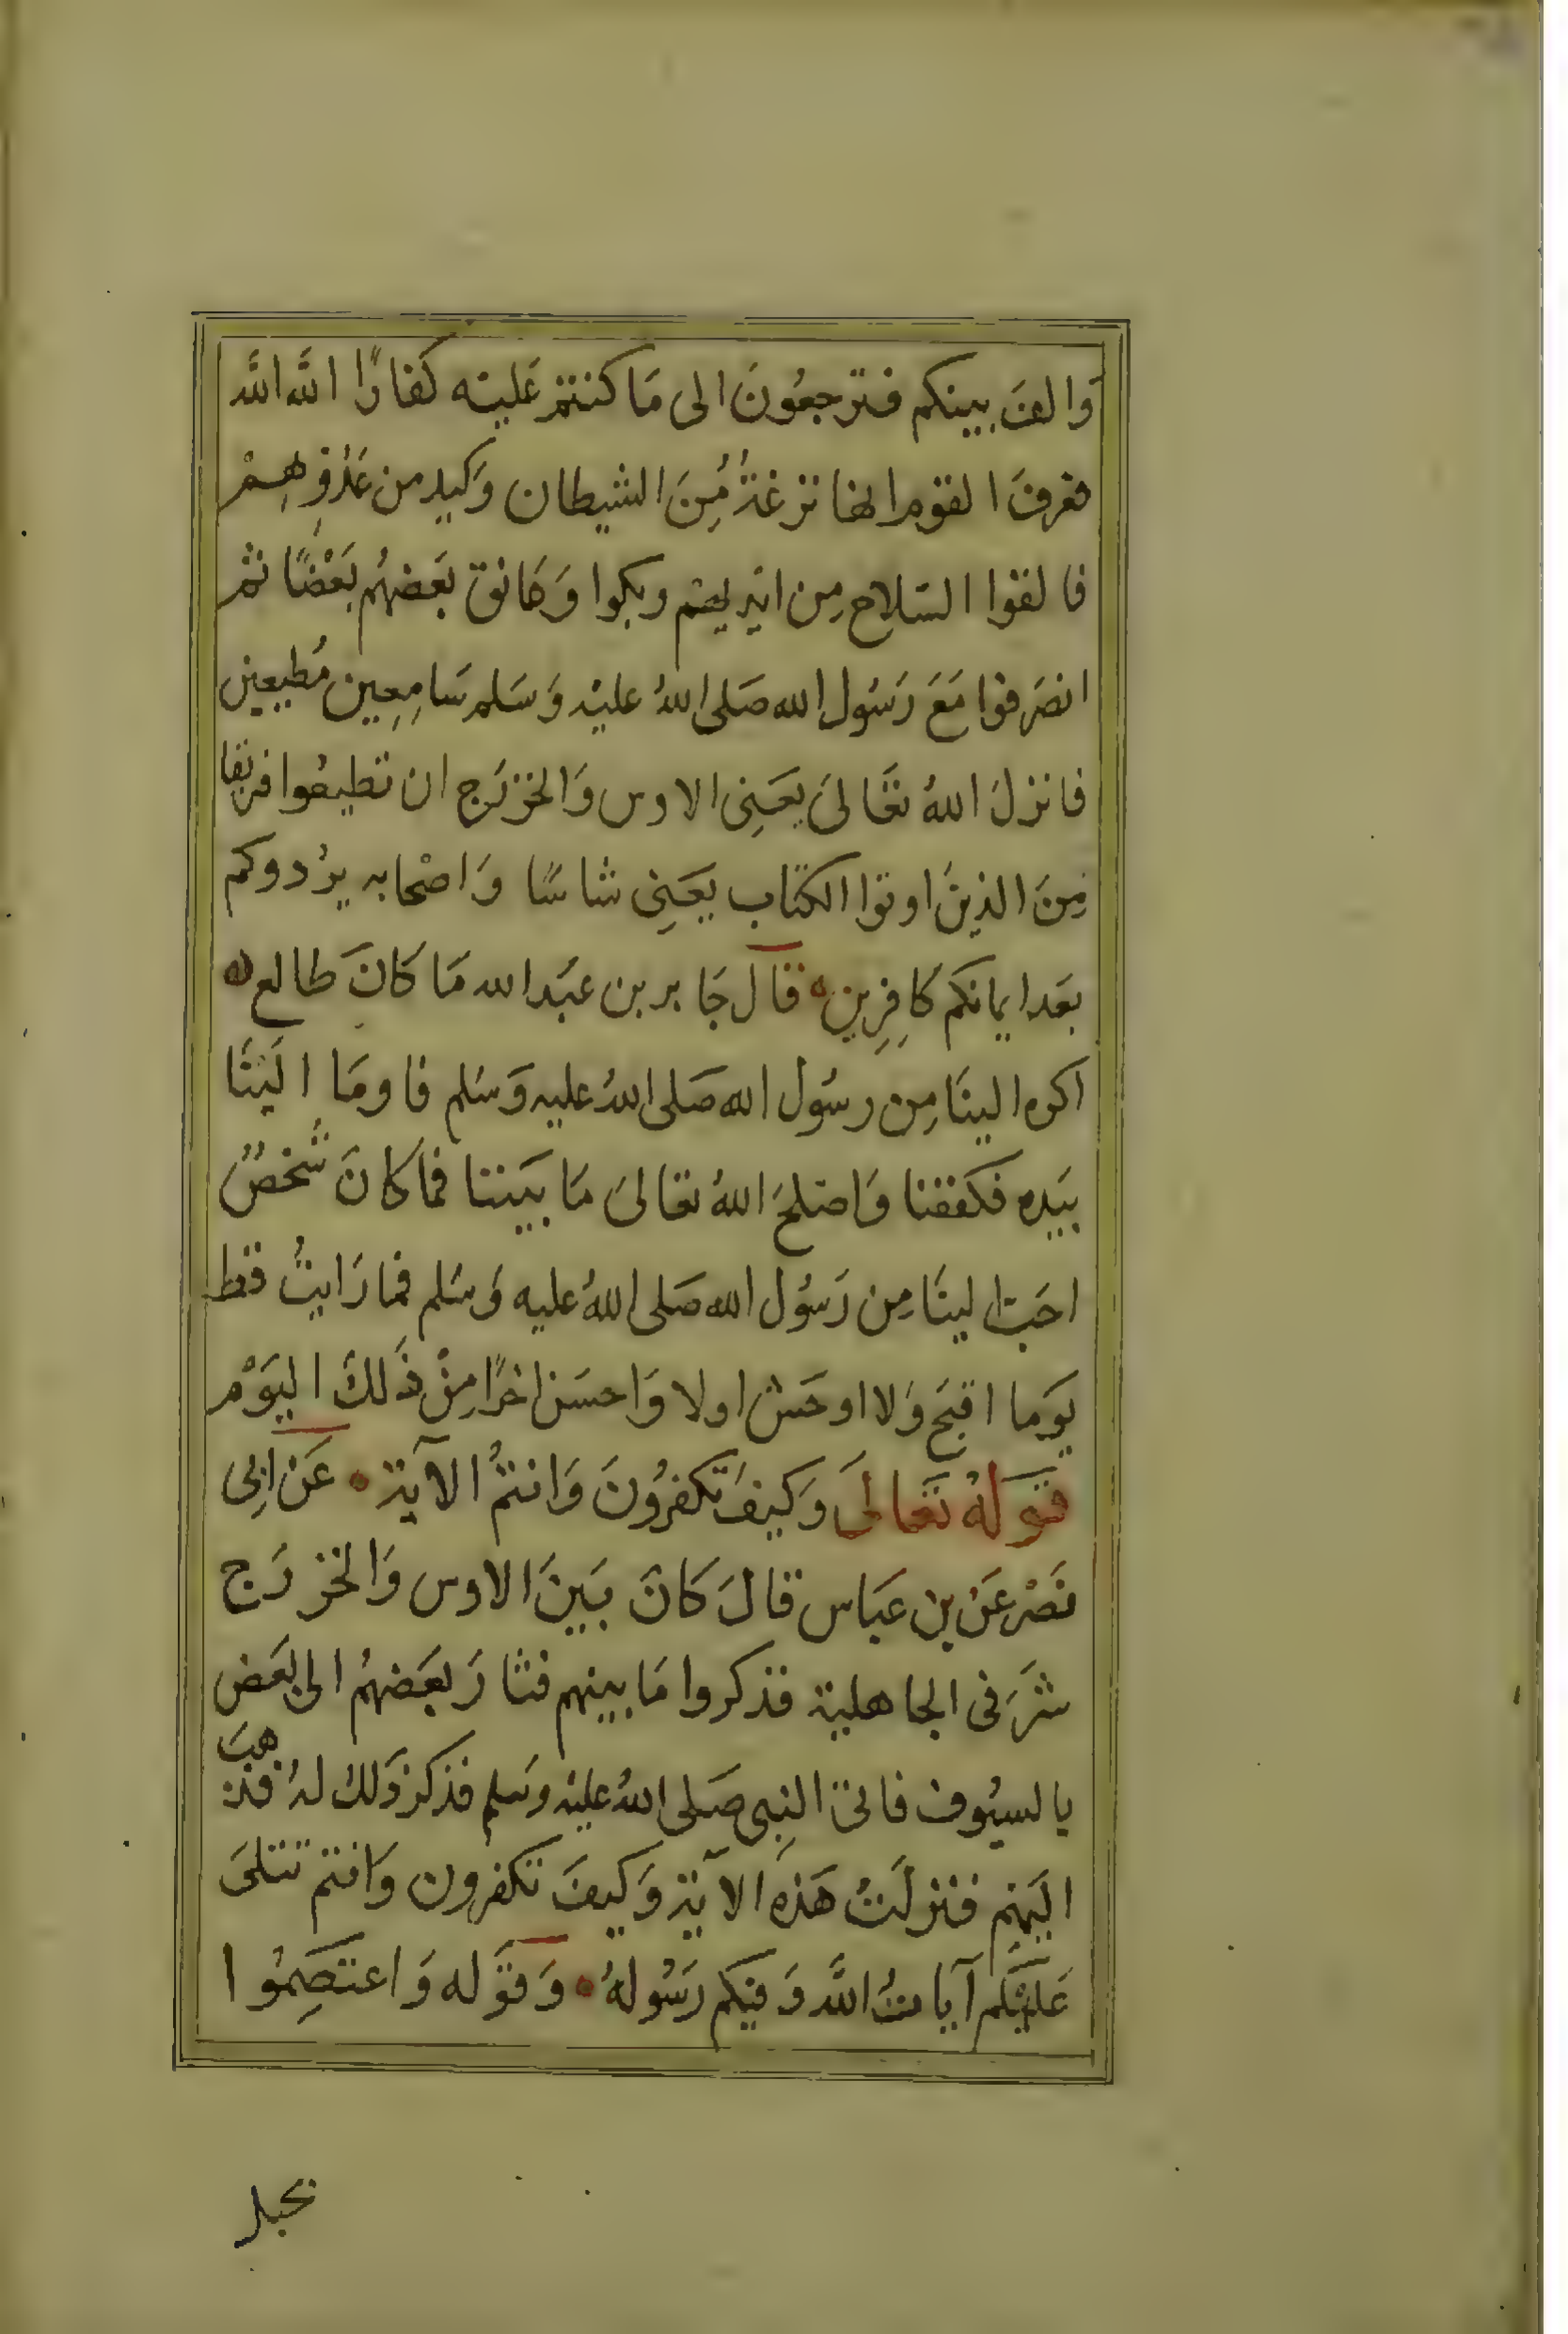 وَالفَ بينكم فترجعُونَ الى مَا كنتم عَليْه كفارًا اللّه اللّه
فعرفَ القوم انها نزغةٌ مِّنَ الشيطان وَكيد من عَدُوِّهِمْ
فالقوا السّلاح مِن ايْديهم وبكوا وَعَانق بَعضهُم بَعْضًا ثم
انصَرفوا مَعَ رَسُول الله صَلى اللهُ عليْه وَسَلم سَامِعِين مُطيعين
فانزلَ اللهُ تعَالىَ يعَنِى الاوس وَالخزرَج ان تطيعُوا فريقا
مِنَ الذينَ اوتوا الكتاب يعَنِى شاسًا وَاصْحابه يرُدوكم
بعَد ايمانكم كَافِرِين ه قال جَابر بن عبَد الله مَا كانَ طالع ه
اكره الينَا مِن رسُول الله صَلى اللهُ عليه وَسَلم فاومَا اليَنَا
بيَده فكففنا وَاصْلحَ اللهُ تعالىَ مَا بيَننا فما كانَ شَخصٌ
احَبّ الينَا مِن رَسُول الله صَلى اللهُ عليه وَسَلم فما رَايتُ قط
يوَما اقبَح وَلا اوحَش اولا وَاحسَن اخرًا مِنْ ذَلكَ اليَوْم
قوَلهُ تعَالىَ وَكيْفَ تكفرُونَ وَانتمُ الآية ه عَن ابِى
نصَرْ عَنْ بن عبَاس قالَ كانَ بيَنَ الاوس وَالخزرَج
شرَ فى الجاهلية فذكروا مَا بينهم فثارَ بعَضهُم الى بعَض
بالسيُوف فاتىَ النبِى صَلى اللهُ عليْه وسَلم فذكر ذَلك لهُ فذهبَ
اليَهم فنزلتْ هَذِه الآية وَكيفَ تكفرون وَانتم تتلىَ
عَليْكم آياتُ اللَّه وَفيكم رَسُولهُ ه وَقوَله وَاعتصِمُوا
بحبل